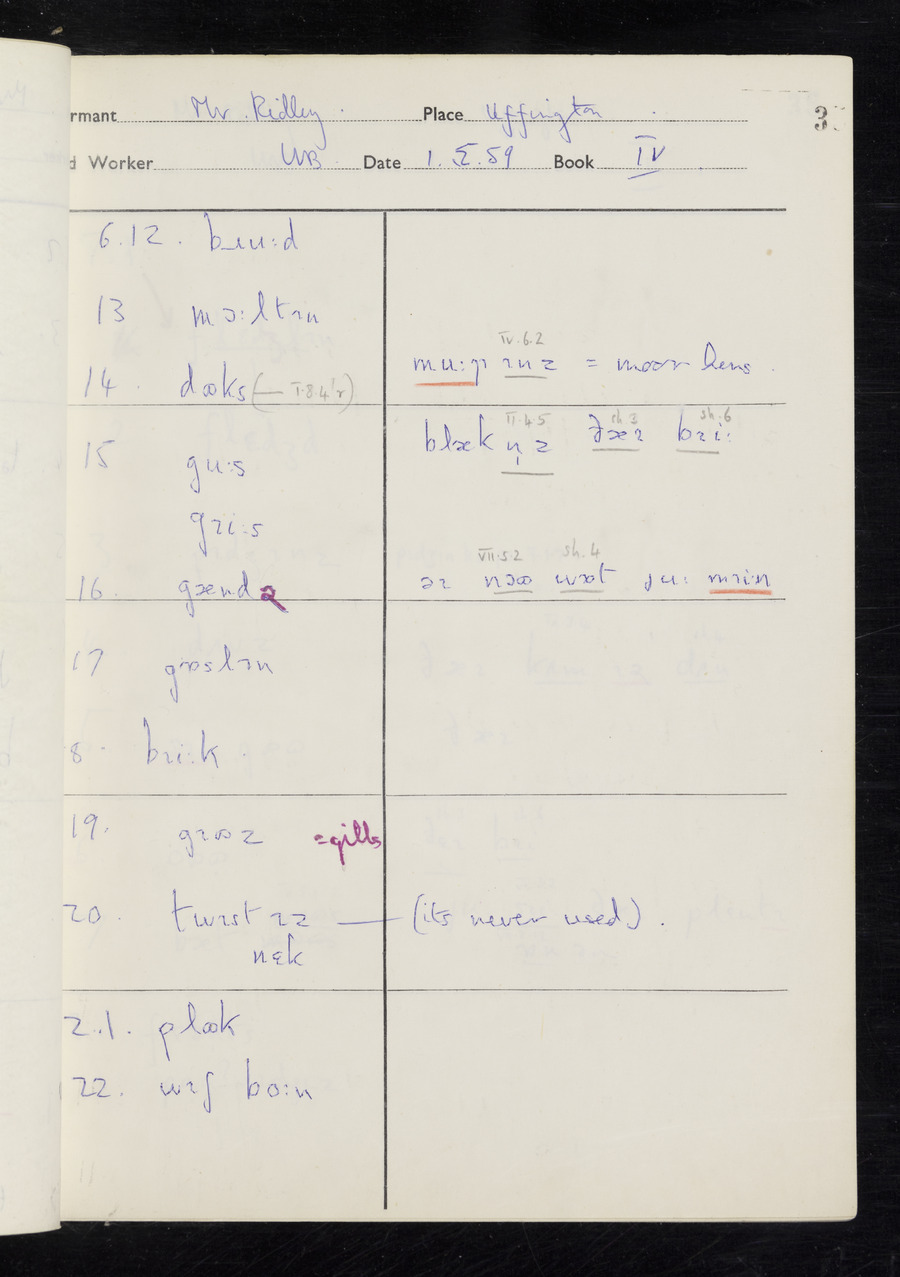 rmant Mr. Ridley. Place Uffington 3
d Worker WB Date 1.X.59 Book IV
6.12. bɹuːd
13 mɔːltɪn
IV.6.2
14. dʊks (— I.8.4'r) ɪnz = moor hens.
II.4.5 sh 3 sh.6
15 blæk n̩z ðæɪ bɹiː
guːs
gɹiːs
VII.5.2 sh.4
16. gænd əɪ nɔʊ wɒt juː mɪin
17 gɒslɪn
8. bɹiːk
19. gɪʊz = gills
20. twɪst ɪz — (its never used).
nɛk
2.1. plʊk
22. wɪʃ boːn